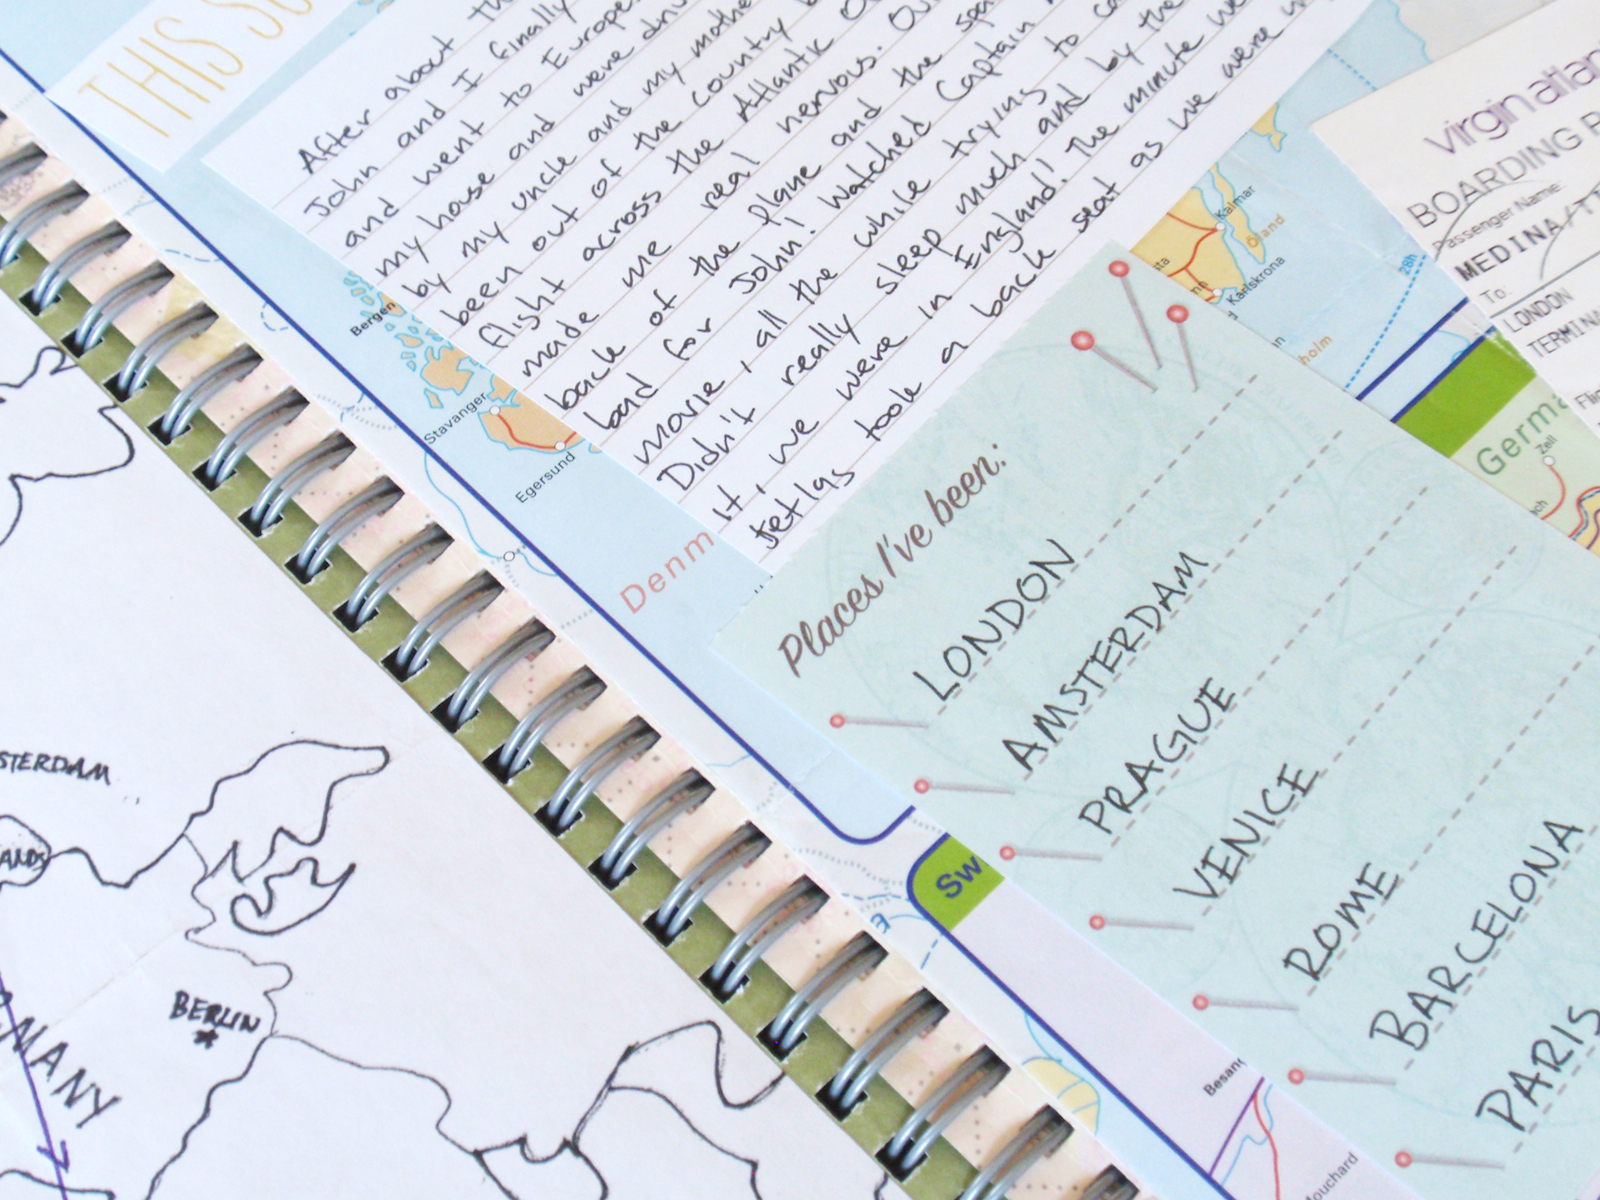 THIS
After about
John and I finally
and went to Europe.
my house and were
by my uncle and my mother
been out of the country
flight across the Atlantic
made me real nervous.
back of the plane and the
bad for John! Watched Captain
movie, all the while trying to
Didn't really sleep much and by the
it, we were in England! The minute we
jetlag took a back seat as we were
virgin atlan
BOARDING
Passenger Name:
MEDINA/
To:
LONDON
Bergen
Stavanger
Egersund
Denm
Kalmar
Öland
Karlskrona
holm
28h
Germa
Zell
Places I've been:
LONDON
AMSTERDAM
PRAGUE
VENICE
ROME
BARCELONA
PARIS
Sw
Besan
ouchard
STERDAM
ANDS
BERLIN
MANY